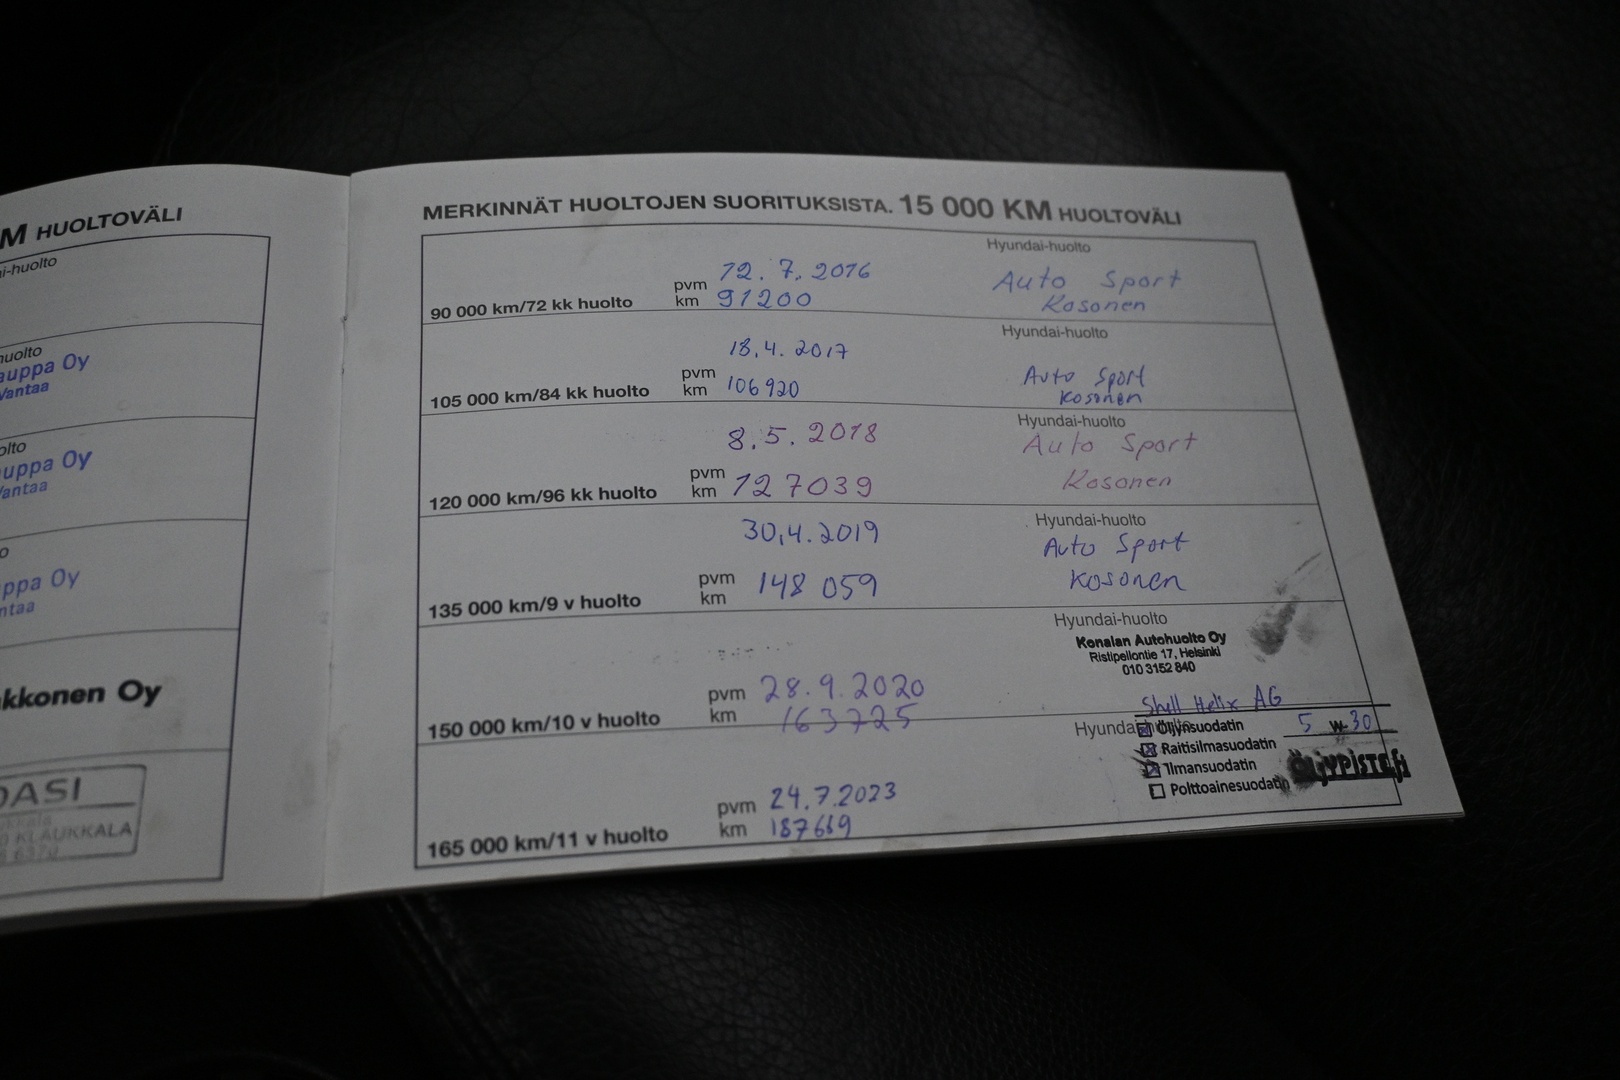 M HUOLTOVÄLI
i-huolto
huolto
auppa Oy
Vantaa
olto
uppa Oy
Vantaa
o
ppa Oy
ntaa
kkonen Oy
DASI
KLAUKKALA
MERKINNÄT HUOLTOJEN SUORITUKSISTA. 15 000 KM HUOLTOVÄLI
Hyundai-huolto
90 000 km/72 kk huolto
pvm 12.7.2016
km 91200
Auto Sport
Kosonen
Hyundai-huolto
105 000 km/84 kk huolto
pvm 18.4.2017
km 106920
Auto Sport
Kosonen
Hyundai-huolto
120 000 km/96 kk huolto
pvm 8.5.2018
km 127039
Auto Sport
Kosonen
Hyundai-huolto
135 000 km/9 v huolto
pvm 30.4.2019
km 148 059
Auto Sport
Kosonen
Hyundai-huolto
150 000 km/10 v huolto
pvm 28.9.2020
km 163725
Konalan Autohuolto Oy
Ristipellontie 17, Helsinki
010 3152 840
Hyundai-huolto
165 000 km/11 v huolto
pvm 24.7.2023
km 187669
Shell Helix AG
Öljynsuodatin 5 W-30
Raitisilmasuodatin
Ilmansuodatin
Polttoainesuodatin
ÖLJYPISTE.fi